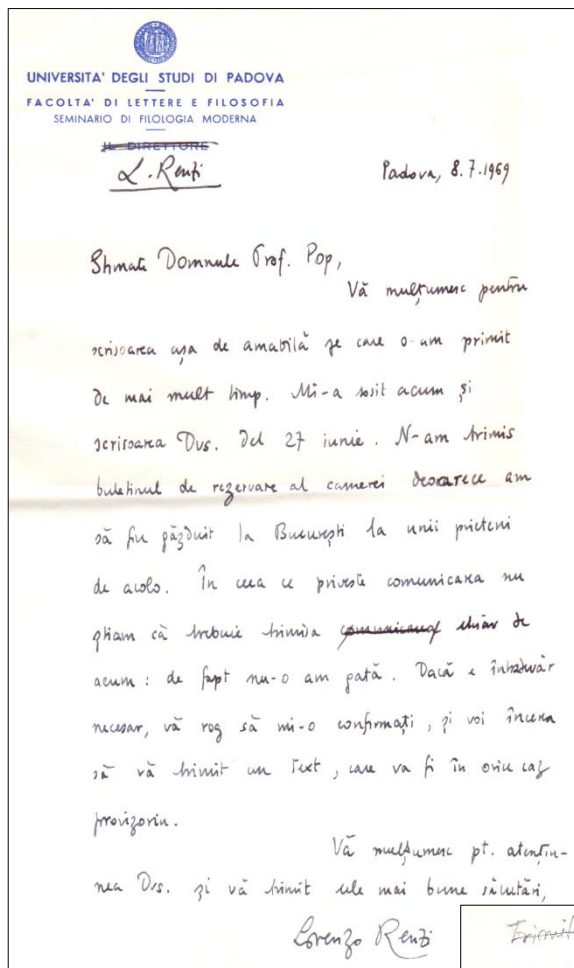 UNIVERSITA' DEGLI STUDI DI PADOVA
FACOLTA' DI LETTERE E FILOSOFIA
SEMINARIO DI FILOLOGIA MODERNA
IL DIRETTORE
L. Renzi
Padova, 8.7.1969
Stimate Domnule Prof. Pop,
Vă mulțumesc pentru
scrisoarea așa de amabilă pe care o-am primit
de mai mult timp. Mi-a sosit acum și
scrisoarea Dvs. del 27 iunie. N-am trimis
buletinul de rezervare al camerei deoarece am
să fiu găzduit la București la unii prieteni
de acolo. În ceea ce priveste comunicarea nu
știam că trebuie trimisă chiar de
acum: de fapt nu-o am gată. Dacă e
necesar, vă rog să mi-o confirmați, și voi
să vă trimit un text, care va fi în orice caz
provizoriu.
Vă mulțumesc pt. atențiu-
nea Dvs. și vă trimit cele mai bune sălutări,
Lorenzo Renzi